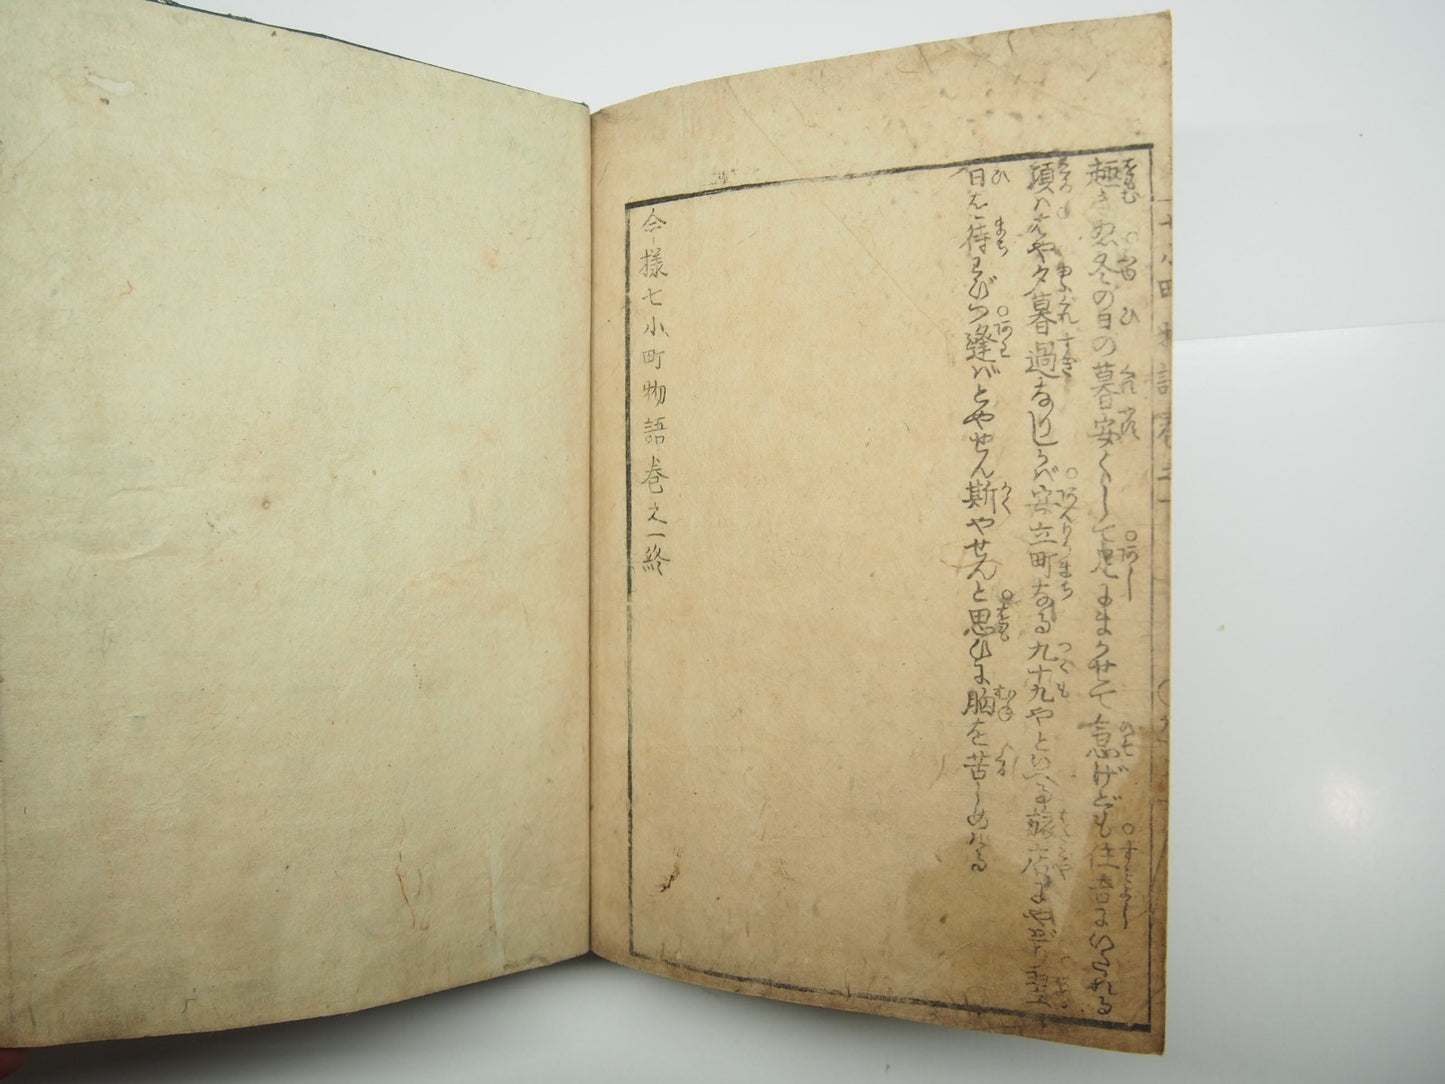 趣きぬ冬の日の暮安くして足にまかせて急げども住吉にいたれる
頃ハはや夕暮過なりしかバ安立町なる九十九やといへる旅店にやどり
日を待わびつ逢バとやせん斯やせんと思ひに胸を苦しめける
今様七小町物語巻之一終